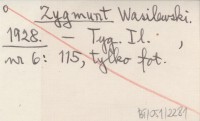 Zygmunt Wasilewski.
1928. – Tyg. Il.,
nr 6: 115, tylko fot.